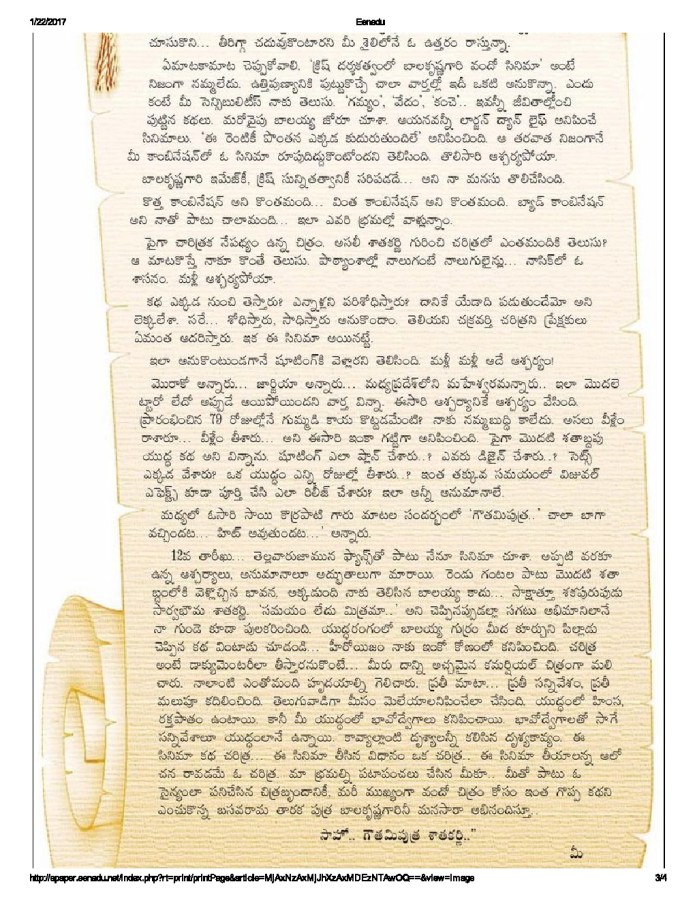 1/22/2017
Eenadu
చూసుకొని... తీరిగ్గా చదువుకొంటారని మీ శైలిలోనే ఓ ఉత్తరం రాస్తున్నా.
ఏమాటకామాట చెప్పుకోవాలి. 'క్రిష్ దర్శకత్వంలో బాలకృష్ణగారి వందో సినిమా' అంటే
నిజంగా నమ్మలేదు. ఉత్తిపుణ్యానికి పుట్టుకొచ్చే చాలా వార్తల్లో ఇదీ ఒకటి అనుకొన్నా. ఎందు
కంటే మీ సెన్సిబులిటీస్ నాకు తెలుసు. 'గమ్యం', 'వేదం', 'కంచె'.. ఇవన్నీ జీవితాల్లోంచి
పుట్టిన కథలు. మరోవైపు బాలయ్య జోరూ చూశా. ఆయనవన్నీ లార్జన్ ద్యాన్ లైఫ్ అనిపించే
సినిమాలు. 'ఈ రెంటికీ పొంతన ఎక్కడ కుదురుతుందిలే' అనిపించింది. ఆ తరవాత నిజంగానే
మీ కాంబినేషన్‌లో ఓ సినిమా రూపుదిద్దుకొంటోందని తెలిసింది. తొలిసారి ఆశ్చర్యపోయా.
బాలకృష్ణగారి ఇమేజ్‌కీ, క్రిష్ సున్నితత్వానికీ సరిపడదే... అని నా మనసు తొలిచేసింది.
కొత్త కాంబినేషన్ అని కొంతమంది... వింత కాంబినేషన్ అని కొంతమంది. బ్యాడ్ కాంబినేషన్
అని నాతో పాటు చాలామంది... ఇలా ఎవరి భ్రమల్లో వాళ్లున్నాం.
పైగా చారిత్రక నేపథ్యం ఉన్న చిత్రం. అసలీ శాతకర్ణి గురించి చరిత్రలో ఎంతమందికి తెలుసు?
ఆ మాటకొస్తే నాకూ కొంతే తెలుసు. పాఠ్యాంశాల్లో నాలుగంటే నాలుగులైన్లు... నాసిక్‌లో ఓ
శాసనం. మళ్లీ ఆశ్చర్యపోయా.
కథ ఎక్కడ నుంచి తెస్తారు? ఎన్నాళ్లని పరిశోధిస్తారు? దానికే యేడాది పడుతుందేమో అని
లెక్కలేశా. సరే... శోధిస్తారు, సాధిస్తారు అనుకొందాం. తెలియని చక్రవర్తి చరిత్రని ప్రేక్షకులు
ఏమంత ఆదరిస్తారు. ఇక ఈ సినిమా అయినట్టే.
ఇలా అనుకొంటుండగానే షూటింగ్‌కి వెళ్లారని తెలిసింది. మళ్లీ మళ్లీ అదే ఆశ్చర్యం!
మొరాకో అన్నారు... జార్జియా అన్నారు... మధ్యప్రదేశ్‌లోని మహేశ్వరమన్నారు.. ఇలా మొదలె
ట్టారో లేదో అప్పుడే అయిపోయిందని వార్త విన్నా. ఈసారి ఆశ్చర్యానికే ఆశ్చర్యం వేసింది.
ప్రారంభించిన 79 రోజుల్లోనే గుమ్మడి కాయ కొట్టడమేంటి? నాకు నమ్మబుద్ధి కాలేదు. అసలు వీళ్లేం
రాశారూ... వీళ్లేం తీశారు... అని ఈసారి ఇంకా గట్టిగా అనిపించింది. పైగా మొదటి శతాబ్దపు
యుద్ధ కథ అని విన్నాను. షూటింగ్ ఎలా ప్లాన్ చేశారు..? ఎవరు డిజైన్ చేశారు..? సెట్స్
ఎక్కడ వేశారు? ఒక యుద్ధం ఎన్ని రోజుల్లో తీశారు..? ఇంత తక్కువ సమయంలో విజువల్
ఎఫెక్ట్స్ కూడా పూర్తి చేసి ఎలా రిలీజ్ చేశారు? ఇలా అన్నీ అనుమానాలే.
మధ్యలో ఓసారి సాయి కొర్రపాటి గారు మాటల సందర్భంలో 'గౌతమిపుత్ర..' చాలా బాగా
వచ్చిందట... హిట్ అవుతుందట...' అన్నారు.
12వ తారీఖు... తెల్లవారుజామున ఫ్యాన్స్‌తో పాటు నేనూ సినిమా చూశా. అప్పటి వరకూ
ఉన్న ఆశ్చర్యాలు, అనుమానాలూ అద్భుతాలుగా మారాయి. రెండు గంటల పాటు మొదటి శతా
బ్దంలోకి వెళ్లొచ్చిన భావన. అక్కడుంది నాకు తెలిసిన బాలయ్య కాదు... సాక్షాత్తూ శకపురుషుడు
సార్వభౌమ శాతకర్ణి. 'సమయం లేదు మిత్రమా..' అని చెప్పినప్పుడల్లా సగటు అభిమానిలానే
నా గుండె కూడా పులకరించింది. యుద్ధరంగంలో బాలయ్య గుర్రం మీద కూర్చుని పిల్లాడు
చెప్పిన కథ వింటాడు చూడండి... హీరోయిజం నాకు ఇంకో కోణంలో కనిపించింది. చరిత్ర
అంటే డాక్యుమెంటరీలా తీస్తారనుకొంటే... మీరు దాన్ని అచ్చమైన కమర్షియల్ చిత్రంగా మలి
చారు. నాలాంటి ఎంతోమంది హృదయాల్ని గెలిచారు. ప్రతీ మాటా... ప్రతీ సన్నివేశం, ప్రతీ
మలుపూ కదిలించింది. తెలుగువాడిగా మీసం మెలేయాలనిపించేలా చేసింది. యుద్ధంలో హింస,
రక్తపాతం ఉంటాయి. కానీ మీ యుద్ధంలో భావోద్వేగాలు కనిపించాయి. భావోద్వేగాలతో సాగే
సన్నివేశాలూ యుద్ధంలానే ఉన్నాయి. కావ్యాల్లాంటి దృశ్యాలన్నీ కలిసిన దృశ్యకావ్యం. ఈ
సినిమా కథ చరిత్ర... ఈ సినిమా తీసిన విధానం ఒక చరిత్ర.. ఈ సినిమా తీయాలన్న ఆలో
చన రావడమే ఓ చరిత్ర. మా భ్రమల్ని పటాపంచలు చేసిన మీకూ.. మీతో పాటు ఓ
సైన్యంలా పనిచేసిన చిత్రబృందానికీ, మరీ ముఖ్యంగా వందో చిత్రం కోసం ఇంత గొప్ప కథని
ఎంచుకొన్న బసవరామ తారక పుత్ర బాలకృష్ణగారినీ మనసారా అభినందిస్తూ..
సాహో.. గౌతమిపుత్ర శాతకర్ణి.."
మీ
http://epaper.eenadu.net/index.php?rt=print/printPage&article=MjAxNzAxMjJhXzAxMDEzNTAwOQ==&view=image
3/4